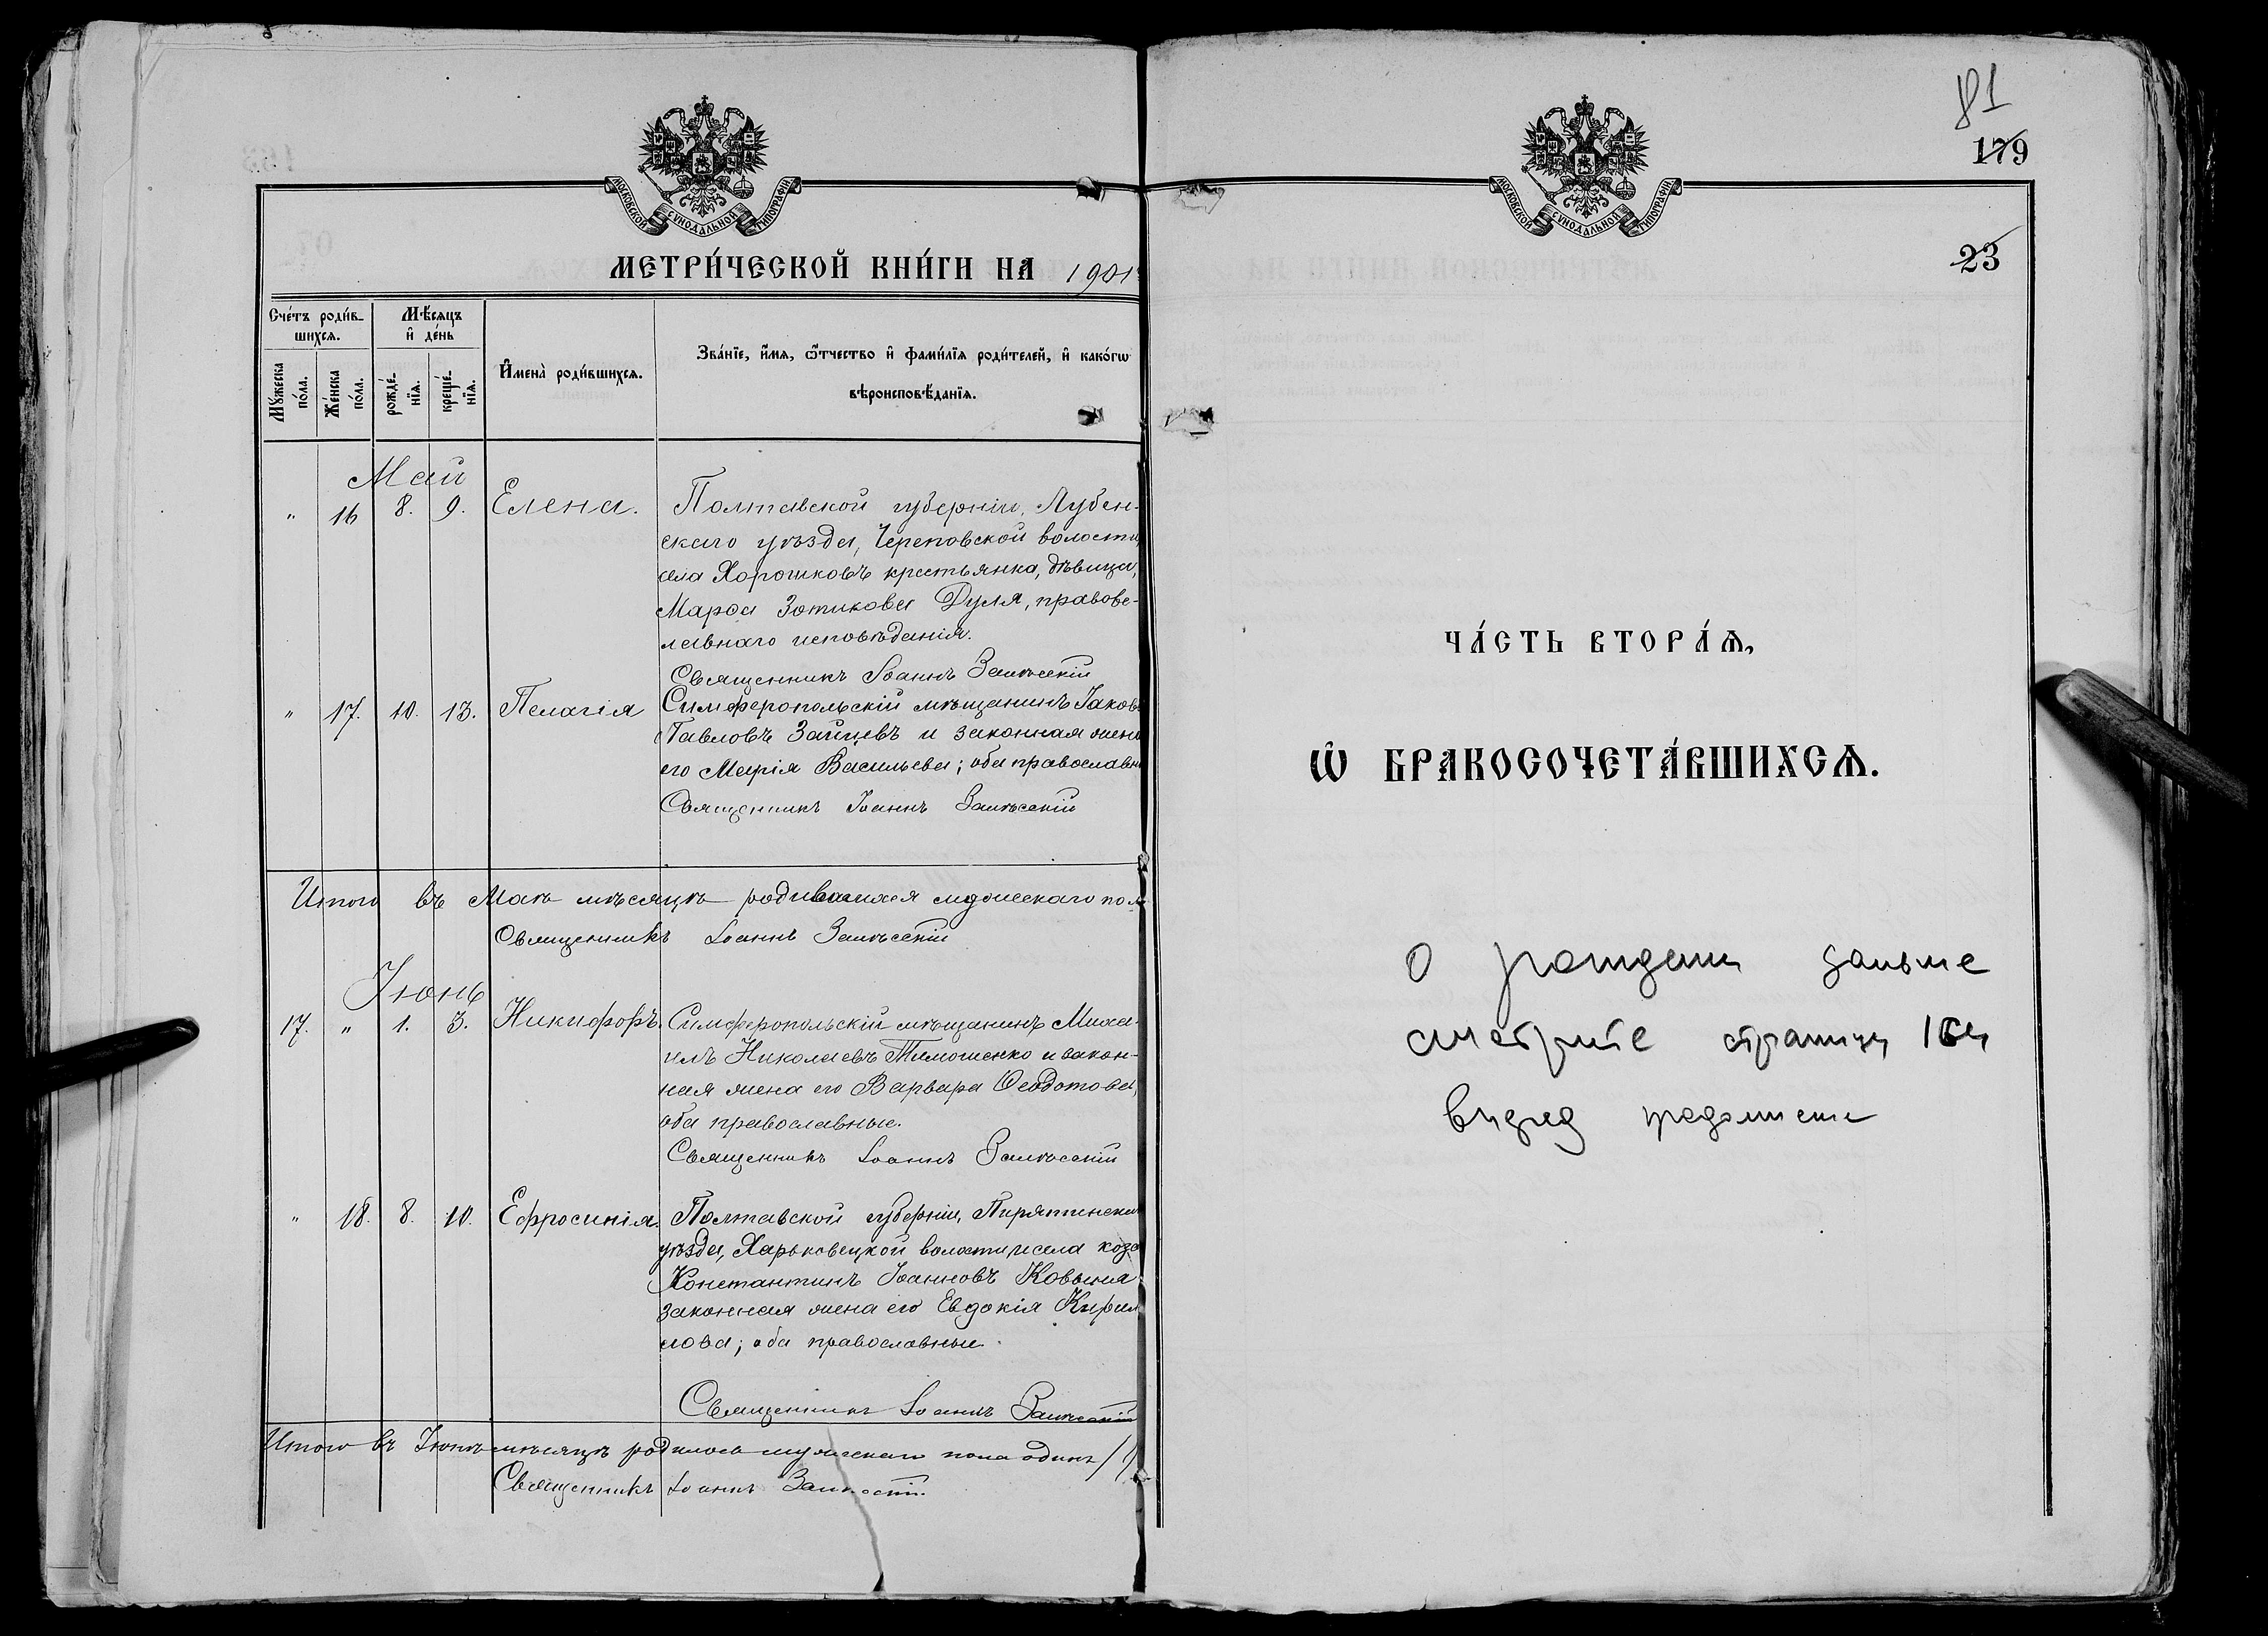 МОСКОВСКОЙ СѴНОДАЛЬНОЙ ТИПОГРАФІИ
МЕТРИ́ЧЕСКОЙ КНИ́ГИ НА 1901
Сче́тъ роди́в-
шихсѧ.
Мѣ́сяцъ
и҆ де́нь
Мꙋ́жеска
по́ла.
Же́нска
по́ла.
рожде́-
нїѧ.
креще́-
нїѧ.
И҆мена̀ роди́вшихсѧ.
Зва́нїе, и҆́мѧ, ѻ҆́тчество и҆ фами́лїѧ роди́телей, и҆ како́гѡ
вѣроисповѣ́данїѧ.
Май
" 16 8. 9. Елена. Полтавской губерніи, Лубен-
скаго уѣзда, Череповской волости,
села Хорошковъ крестьянка, дѣвица,
Марѳа Зотикова Дуля, правосла-
лавнаго исповѣданія.
Священникъ Іоаннъ
" 17. 10. 13. Пелагія Симферопольскій мѣщанинъ Іаковъ
Павловъ Зайцевъ и законная жена
его Марія Васильева; оба православн
Священникъ Іоаннъ
Итого въ Маѣ мѣсяцѣ мужескаго пол
Священникъ Іоаннъ
Іюнь
17. " 1. 3. Никифоръ. Симферопольскій мѣщанинъ Миха-
илъ Николаевъ Тимошенко и закон-
ная жена его Варвара Ѳеодотова,
оба православные.
Священникъ Іоаннъ
" 18. 8. 10. Ефросинія. Полтавской губерніи, Пирятинска
уѣзда, Харьковецкой волости, села коза
Константинъ Іоанновъ
законная жена его Евдокія Кирил
лова; оба православные.
Священникъ Іоаннъ
Итого въ Іюнѣ мѣсяцѣ родилось мужескаго пола одинъ /1/
Священникъ Іоаннъ
81
179
МОСКОВСКОЙ СѴНОДАЛЬНОЙ ТИПОГРАФІИ
23
ЧА́СТЬ ВТОРА́Ѧ,
Ѡ҆ БРАКОСОЧЕТА́ВШИХСѦ.
О рождении дальше
смотрите страницу